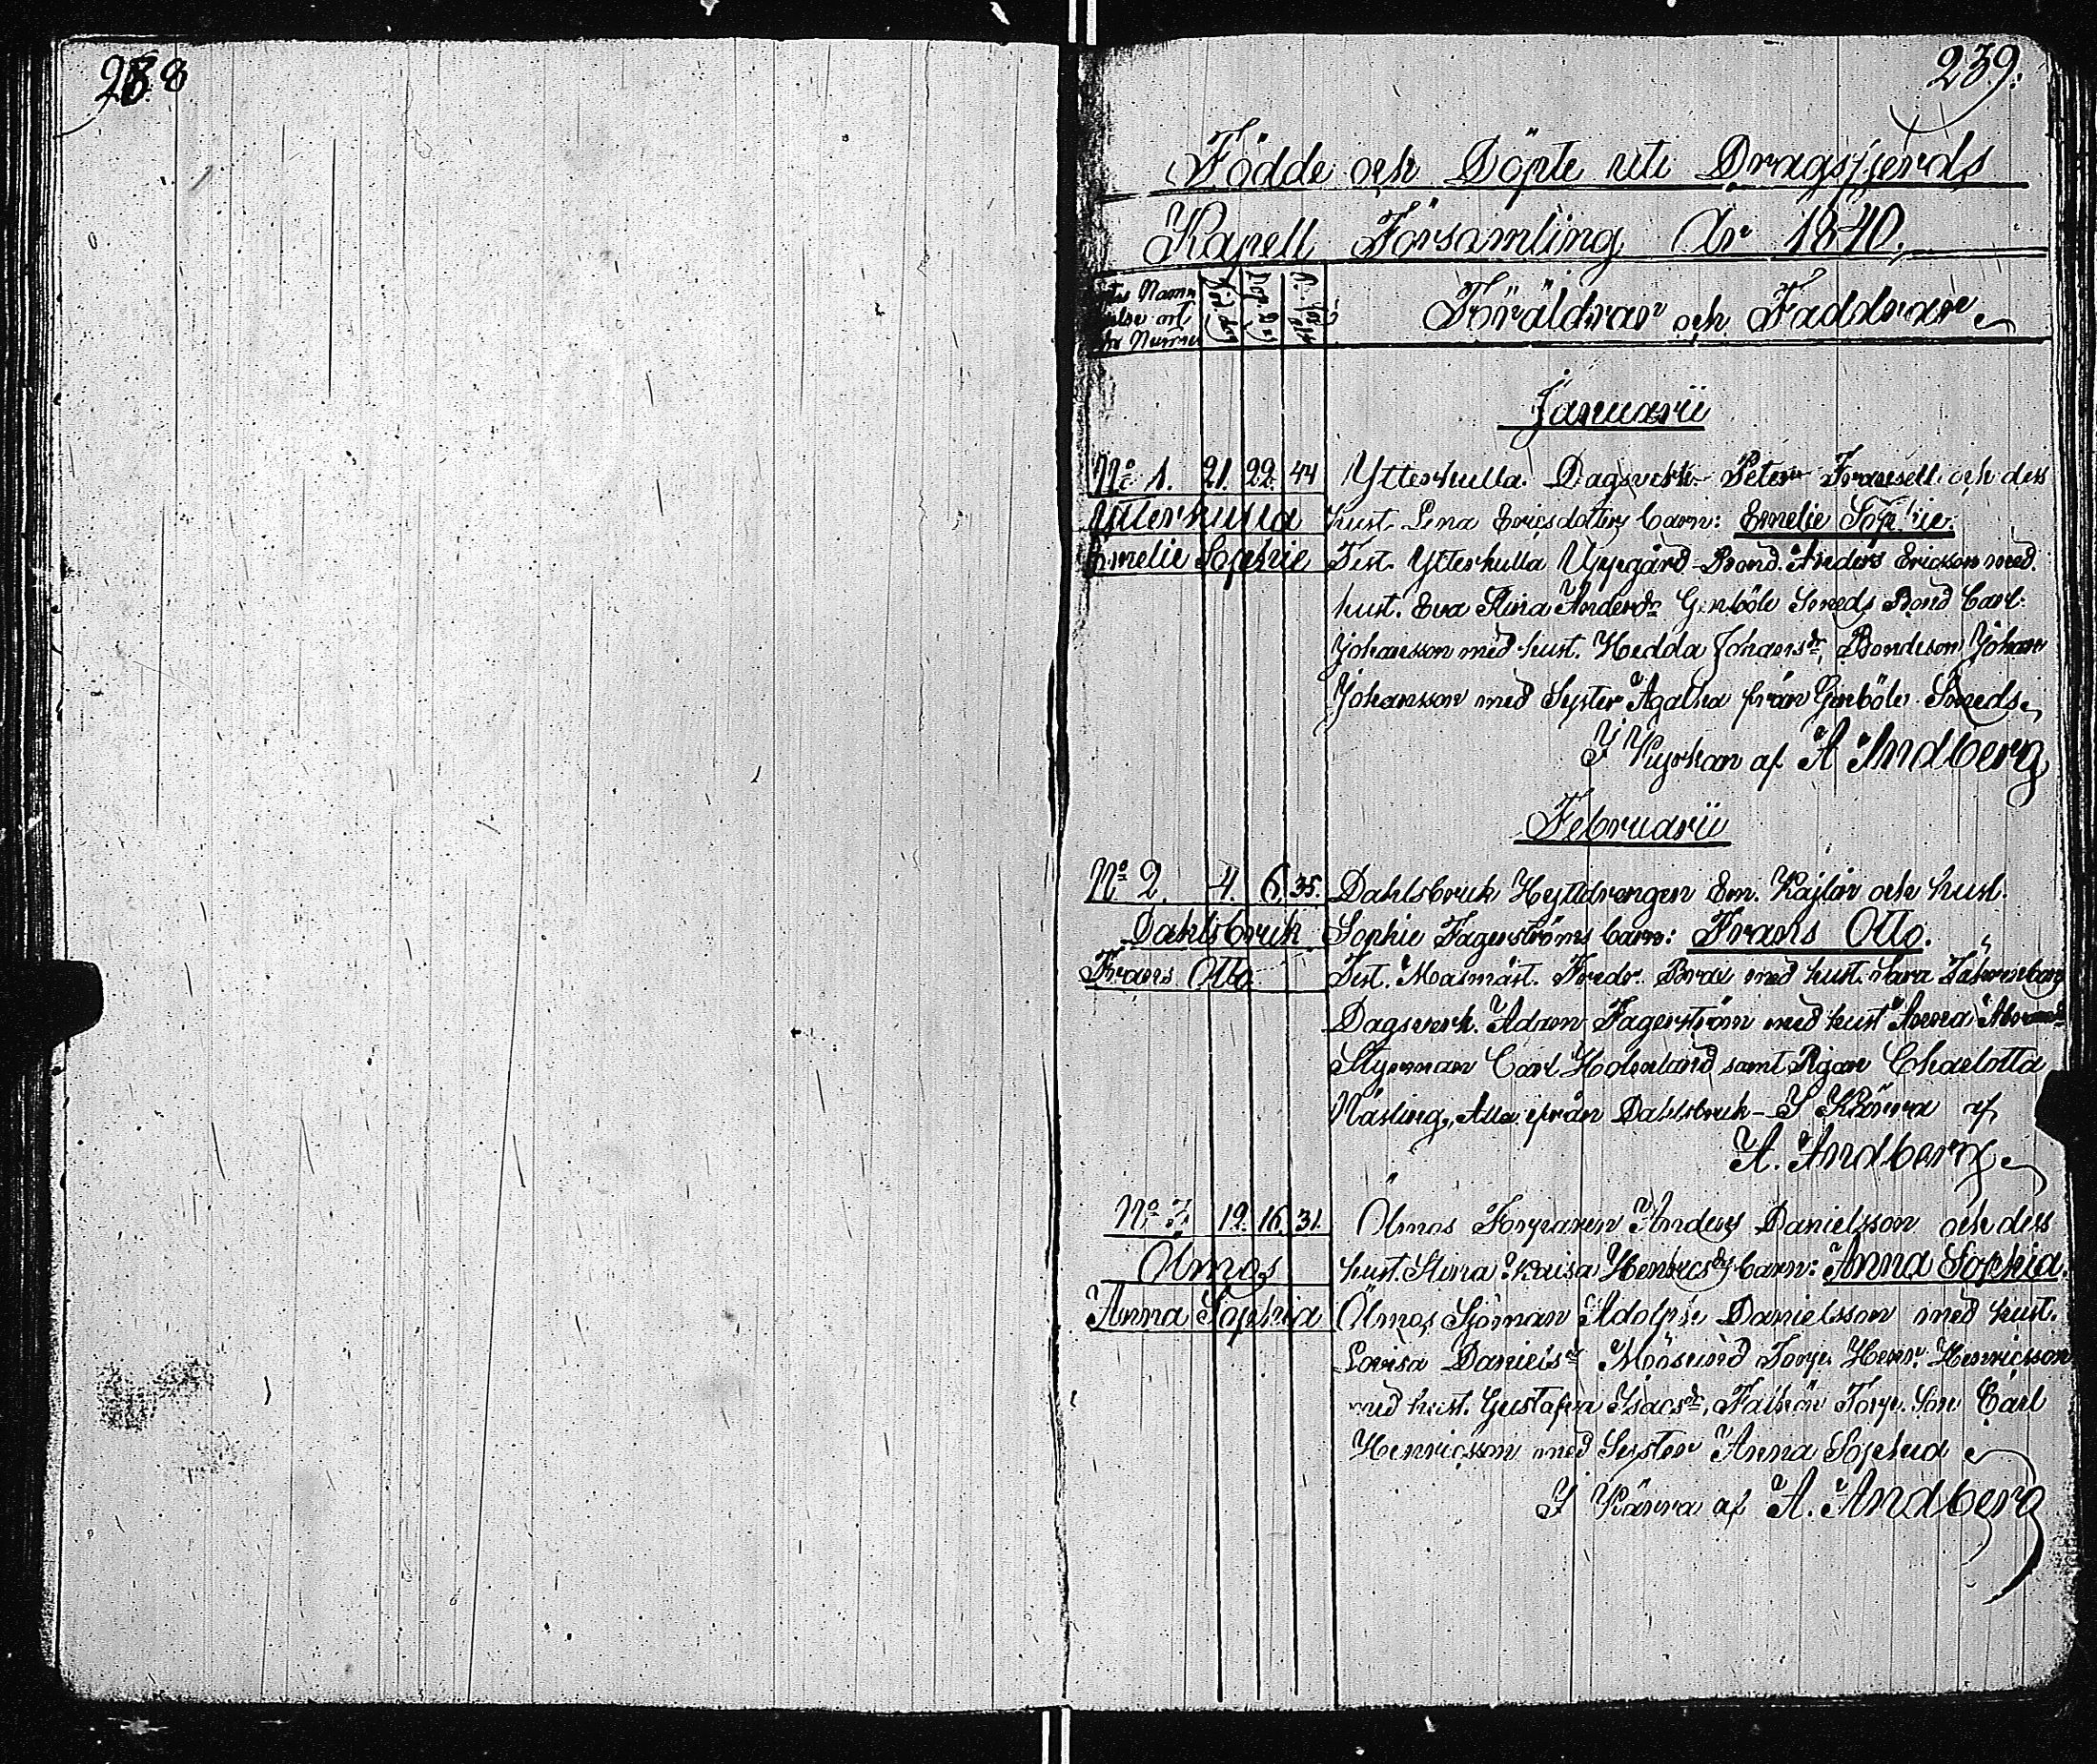 238
239.
Födde och Döpte uti Dragsfjerds
Kapell Församling År 1840.
Namn
ort
Föräldrar och Faddrar
Januarii
No 1. 21. 22. 44 Ytterkulla Dagsverk. Peter Fransell och dess
Ytterkulla hust. Lena Ericsdotters barn: Emelie Sophie.
Emelie Sophie Test. Ytterkulla Uppgård Bond. Anders Ericsson med
hust. Eva Stina Andersdr Genböle Smeds Bond Carl
Johansson med hust. Hedda Johansdr, Bondeson Johan
Johansson med Syster Agatha från Genböle Smeds
I Kyrkan af A Andberg
Februarii
No 2. 4. 6. 35. Dahlsbruk Hyttdrengen Em. och hust.
Dahlsbruk Sophie Fagerströms barn: Frans Otto.
Frans Otto Test. Masmäst. Fredr. med hust. Sara
Dagsverk. Adam Fagerström med hust Anna
Styrman Carl samt Pigan Charlotta
Näsling, Alla från Dahlsbruk - I af
A. Andberg
No 3. 12. 16. 31. Ölmos Torparen Anders Danielsson och dess
Ölmos hust. Stina Kaisa Henricsdrs barn: Anna Sophia.
Anna Sophia Ölmos Sjöman Adolph Danielsson med hust.
Lovisa Danielsdr Torp. Henr. Henricsson
med hust. Gustafva Isacsdr, Falkön Torp. Son Carl
Henricsson med Syster Anna Sophia
I af A. Andberg